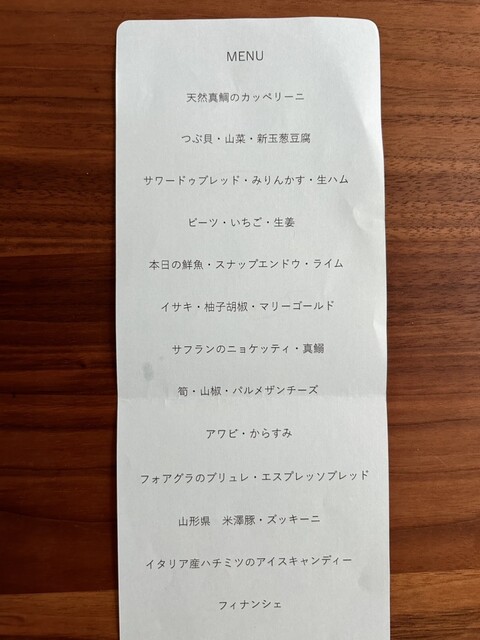 MENU
天然真鯛のカッペリーニ
つぶ貝・山菜・新玉葱豆腐
サワードゥブレッド・みりんかす・生ハム
ビーツ・いちご・生姜
本日の鮮魚・スナップエンドウ・ライム
イサキ・柚子胡椒・マリーゴールド
サフランのニョケッティ・真鰯
筍・山椒・パルメザンチーズ
アワビ・からすみ
フォアグラのブリュレ・エスプレッソブレッド
山形県　米澤豚・ズッキーニ
イタリア産ハチミツのアイスキャンディー
フィナンシェ